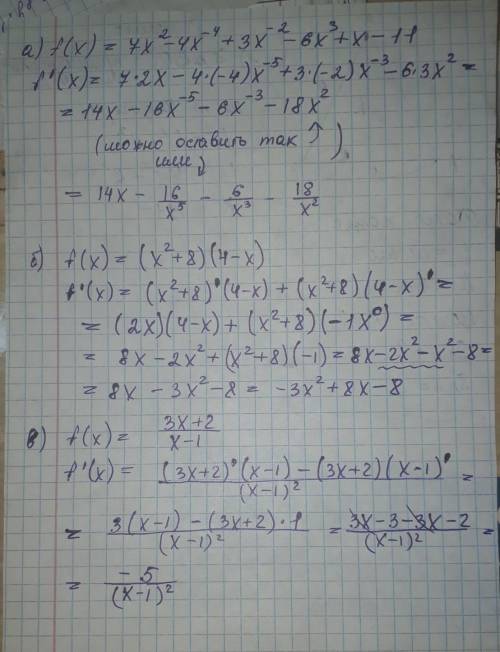 а) f(x) = 7x² - 4x⁻⁴ + 3x⁻² - 6x³ + x - 11
f'(x) = 7·2x - 4·(-4)x⁻⁵ + 3·(-2)x⁻³ - 6·3x² =
= 14x - 16x⁻⁵ - 6x⁻³ - 18x²
(можно оставить так ↑
или ↓ ).
= 14x - 16/x⁵ - 6/x³ - 18/x²
б) f(x) = (x²+8)(4-x)
f'(x) = (x²+8)'(4-x) + (x²+8)(4-x)' =
= (2x)(4-x) + (x²+8)(-1x⁰) =
= 8x - 2x² + (x²+8)(-1) = 8x - 2x² - x² - 8 =
= 8x - 3x² - 8 = -3x² + 8x - 8
в) f(x) = (3x+2)/(x-1)
f'(x) = ((3x+2)'(x-1) - (3x+2)(x-1)')/(x-1)² =
= (3(x-1) - (3x+2)·1)/(x-1)² = (3x-3-3x-2)/(x-1)² =
= -5/(x-1)²